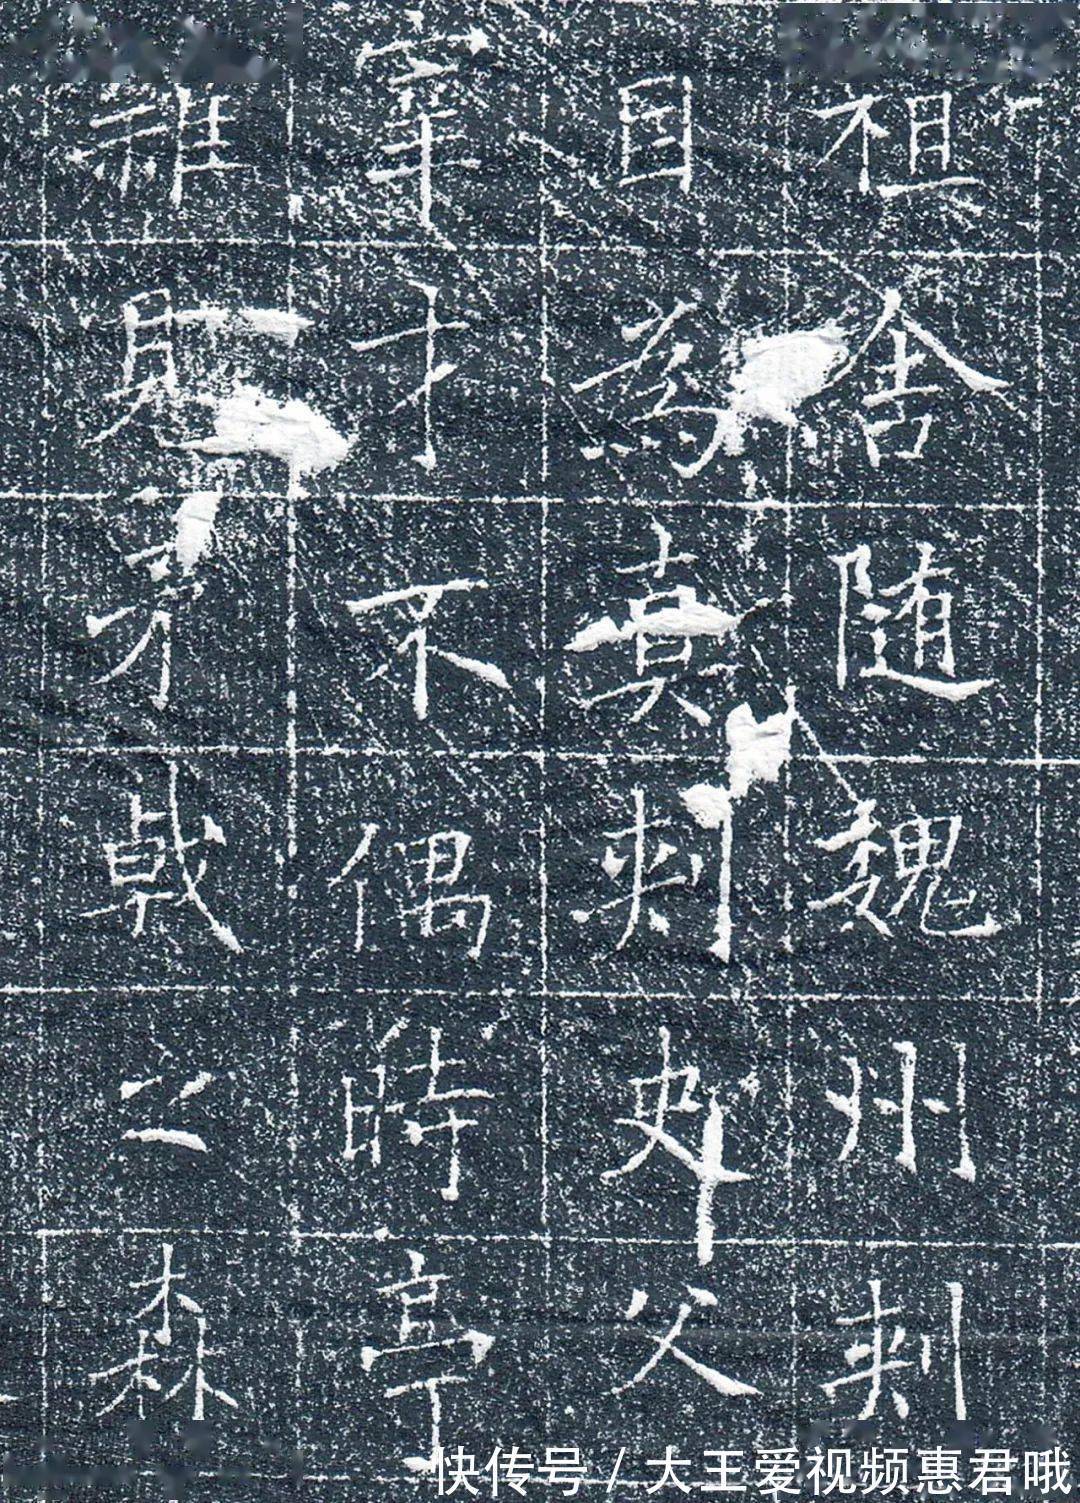 祖舍随魏州刺
目為真刺史父
宰才不偶時亭
雖見矛戟之森
快传号 / 大王爱视频惠君哦